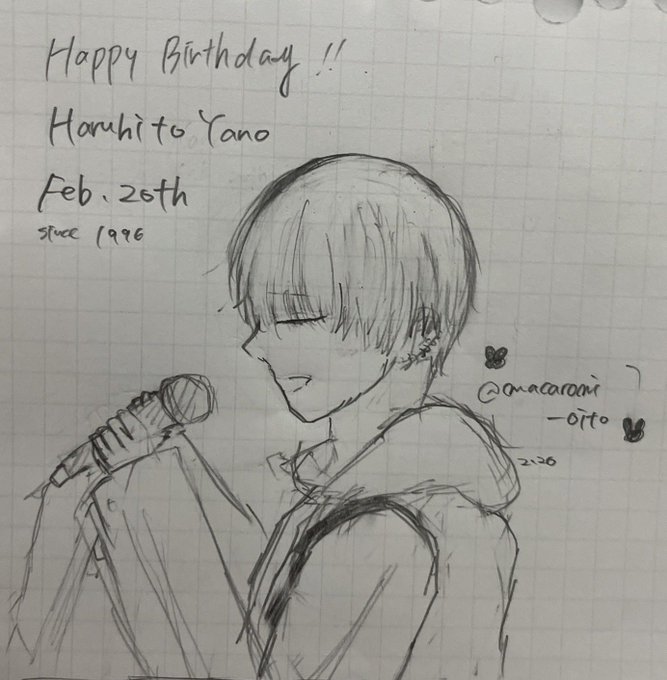 Happy Birthday !!
Haruhito Yano
Feb. 20th
since 1996
@macaroni
-oito
2.20